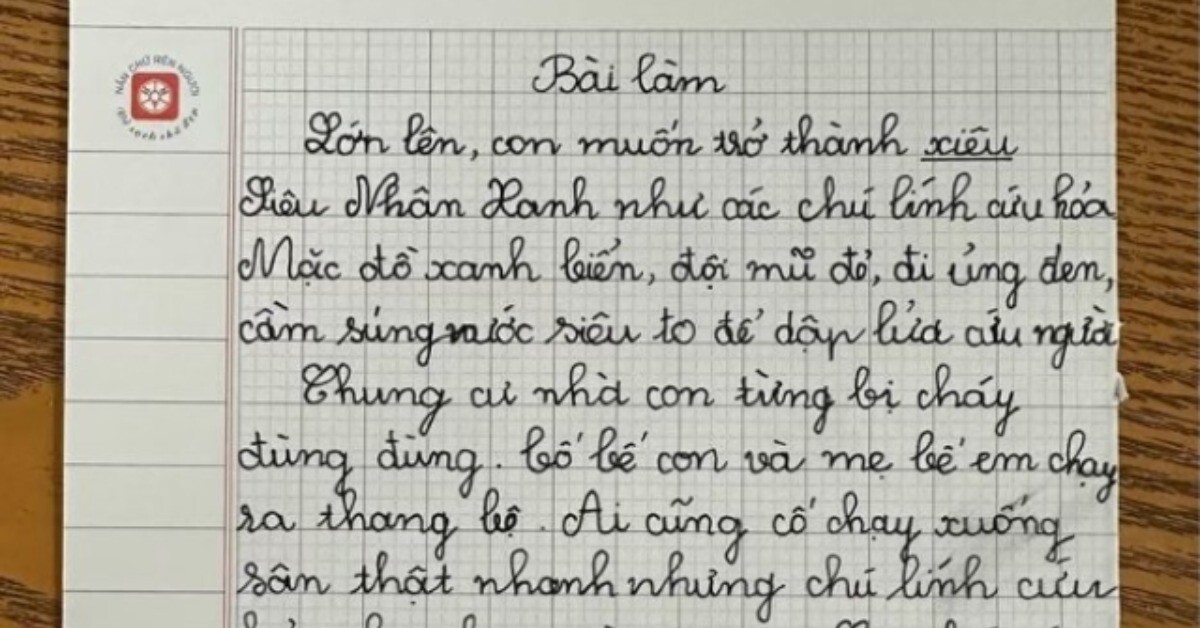 NẮN CHỮ RÈN NGƯỜI
Bài làm
Lớn lên, con muốn trở thành xiêu
Siêu Nhân Xanh như các chú lính cứu hỏa
Mặc đồ xanh biển, đội mũ đỏ, đi ủng đen,
cầm súng nước siêu to để dập lửa cứu người
Chung cư nhà con từng bị cháy
đùng đùng. bố bế con và mẹ bế em chạy
ra thang bộ. Ai cũng cố chạy xuống
sân thật nhanh nhưng chú lính cứu